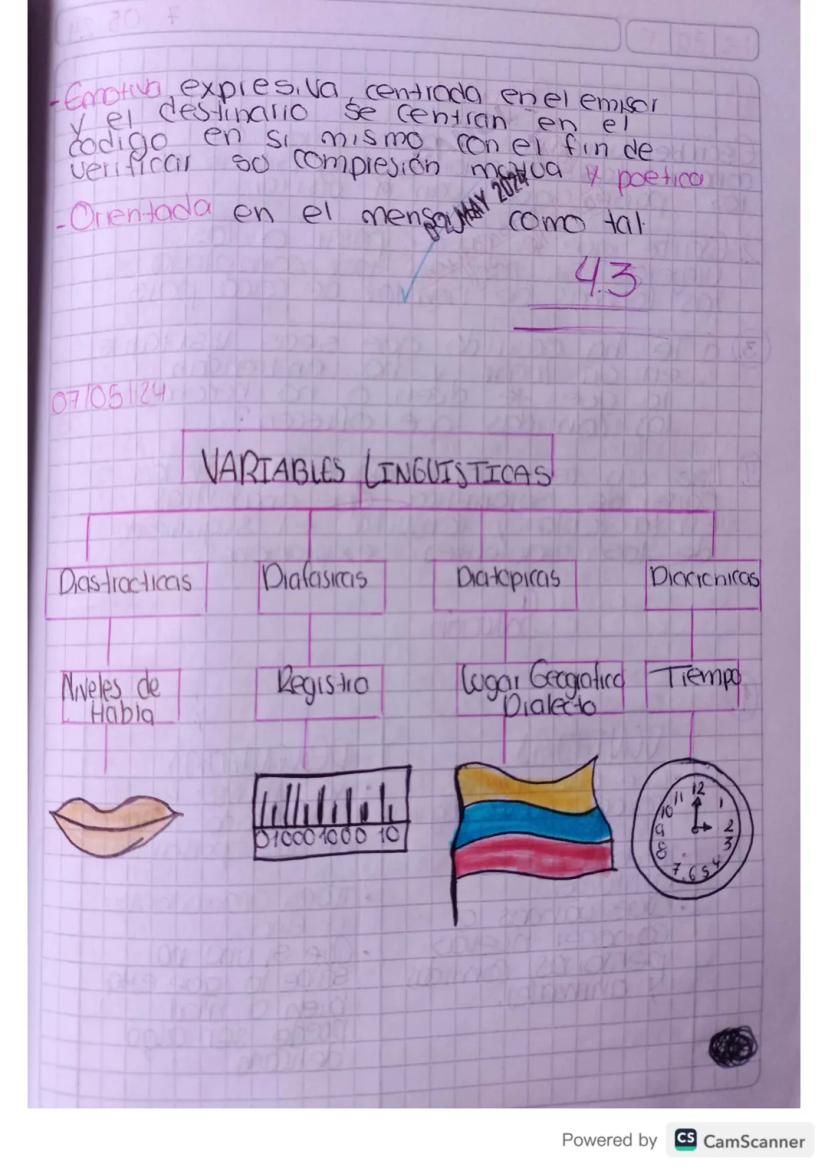 - Emotiva expresiva, centrada en el emisor
y el destinario se centran en el
codigo en si mismo con el fin de
verificar so compresión mutua y poetica
- Orientada en el mensaje como tal.
MAY 2024
4.3
07/05/24
VARIABLES LINGUISTICAS
Diastracticas Diafasicas Diatopicas Diacricnicas
Niveles de Registro Lugar Geografico Tiempo
Habla Dialecto
01000 1000 10
12
11 1
10
9 2
8 3
7 6 5 4
Powered by CS CamScanner